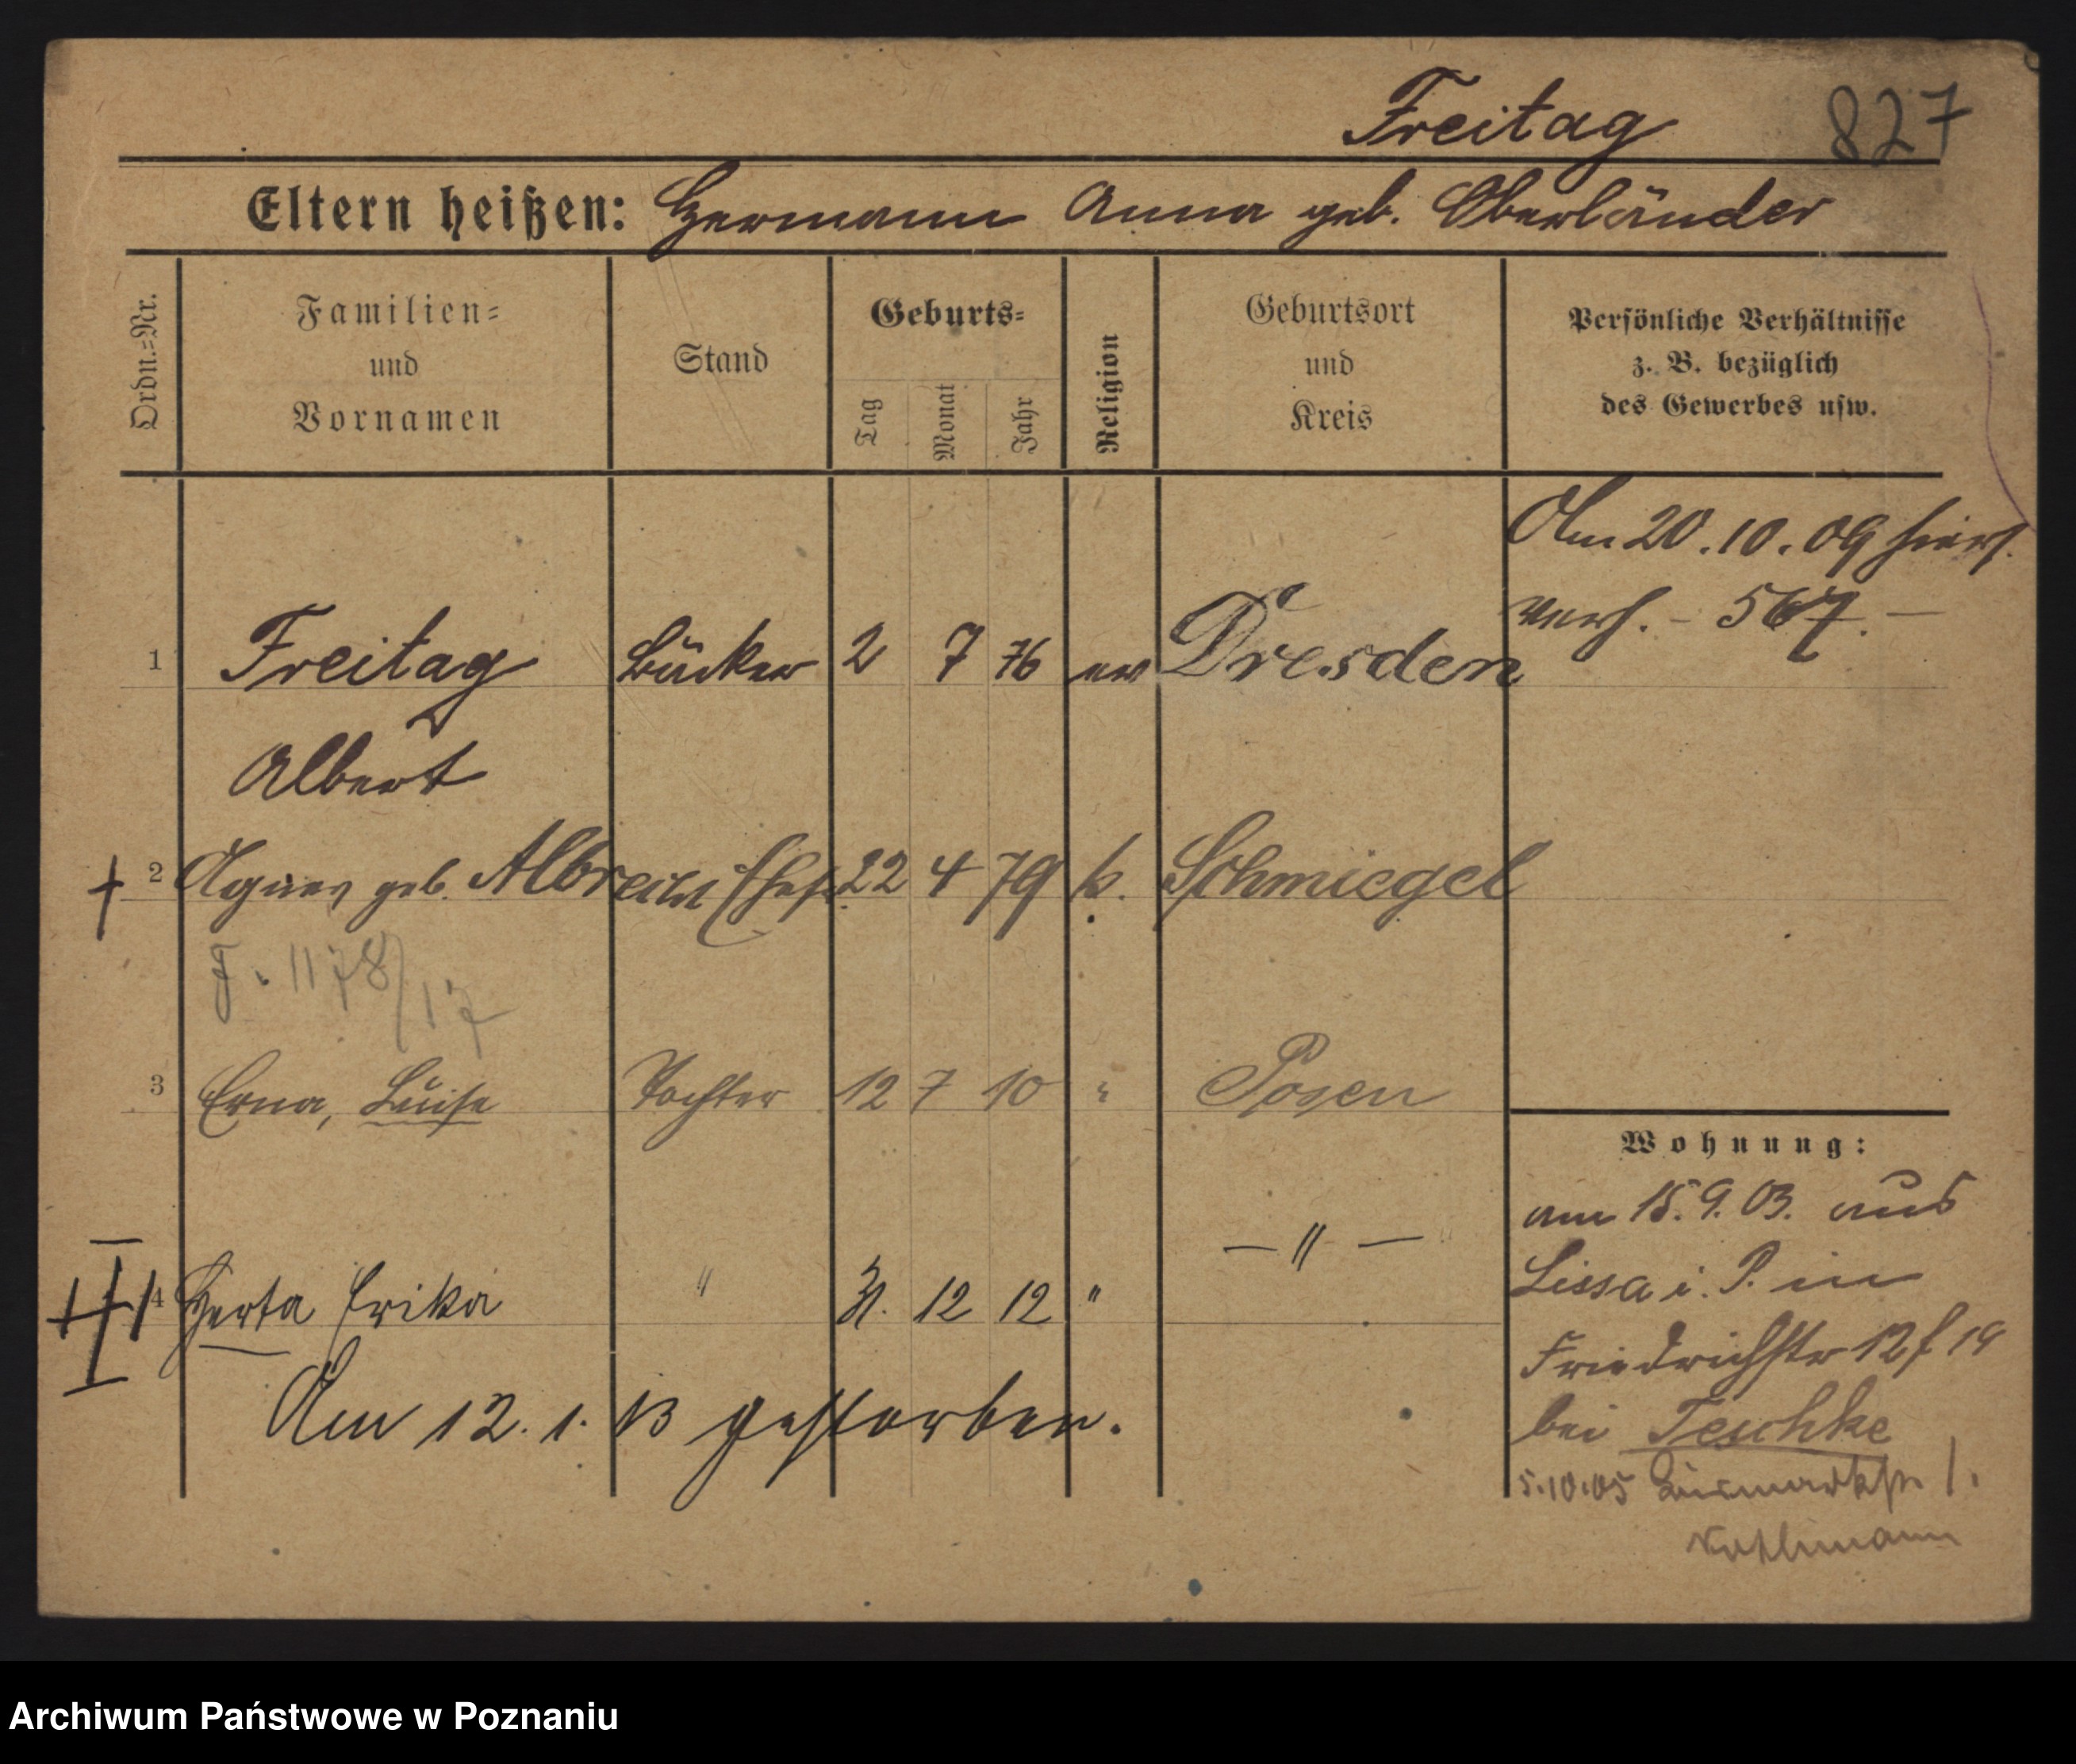 Freitag 827
Eltern heißen: Hermann Anna geb. Oberländer
Ordn.=Nr.
Familien=
und
Vornamen
Stand
Geburts=
Tag
Monat
Jahr
Religion
Geburtsort
und
Kreis
Persönliche Verhältnisse
z. B. bezüglich
des Gewerbes usw.
Am 20.10.09 hier
verh. - 567. -
1 Freitag Bäcker 2 7 76 ev Dresden
Albert
† 2 Agnes geb. Albrecht Ehefr. 22 4 79 k. Schmiegel
F. 1178/17
3 Erna, Luise Tochter 12 7 10 " Posen
4 Herta Erika " 31. 12 12 " — " —
Am 12. 1. 13 gestorben.
Wohnung:
am 15. 9. 03. aus
Lissa i. P. in
Friedrichstr 12 f 19
bei Teschke
5.10.05 Bismarckstr. 1.
Archiwum Państwowe w Poznaniu